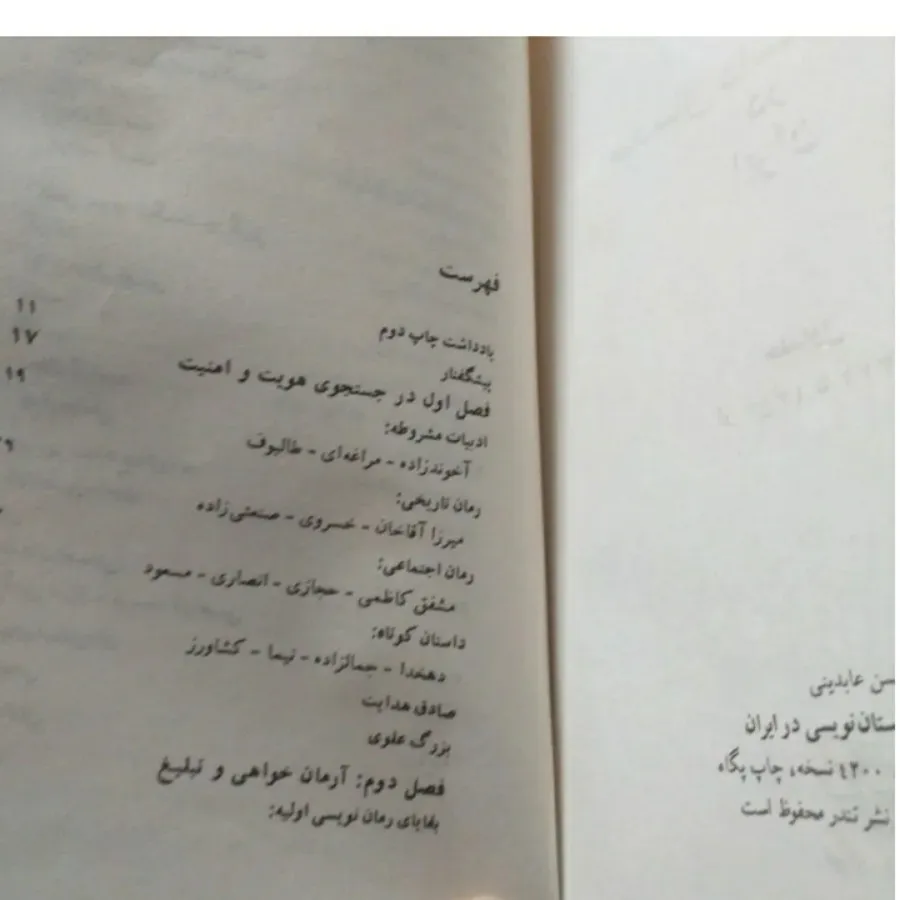 سن عابدینی
ستان نویسی در ایران
۴۲۰۰ نسخه، چاپ پگاه
نشر تندر محفوظ است
فهرست
یادداشت چاپ دوم ۱۱
پیشگفتار ۱۷
فصل اول در جستجوی هویت و امنیت ۱۹
ادبیات مشروطه:
آخوندزاده - مراغه‌ای - طالبوف
رمان تاریخی:
میرزا آقاخان - خسروی - صنعتی‌زاده
رمان اجتماعی:
مشفق کاظمی - حجازی - انصاری - مسعود
داستان کوتاه:
دهخدا - جمالزاده - نیما - کشاورز
صادق هدایت
بزرگ علوی
فصل دوم: آرمان خواهی و تبلیغ
بقایای رمان نویسی اولیه: